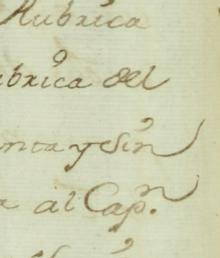 Rubrica
ubrica del
enta y Sin
al Cap.n